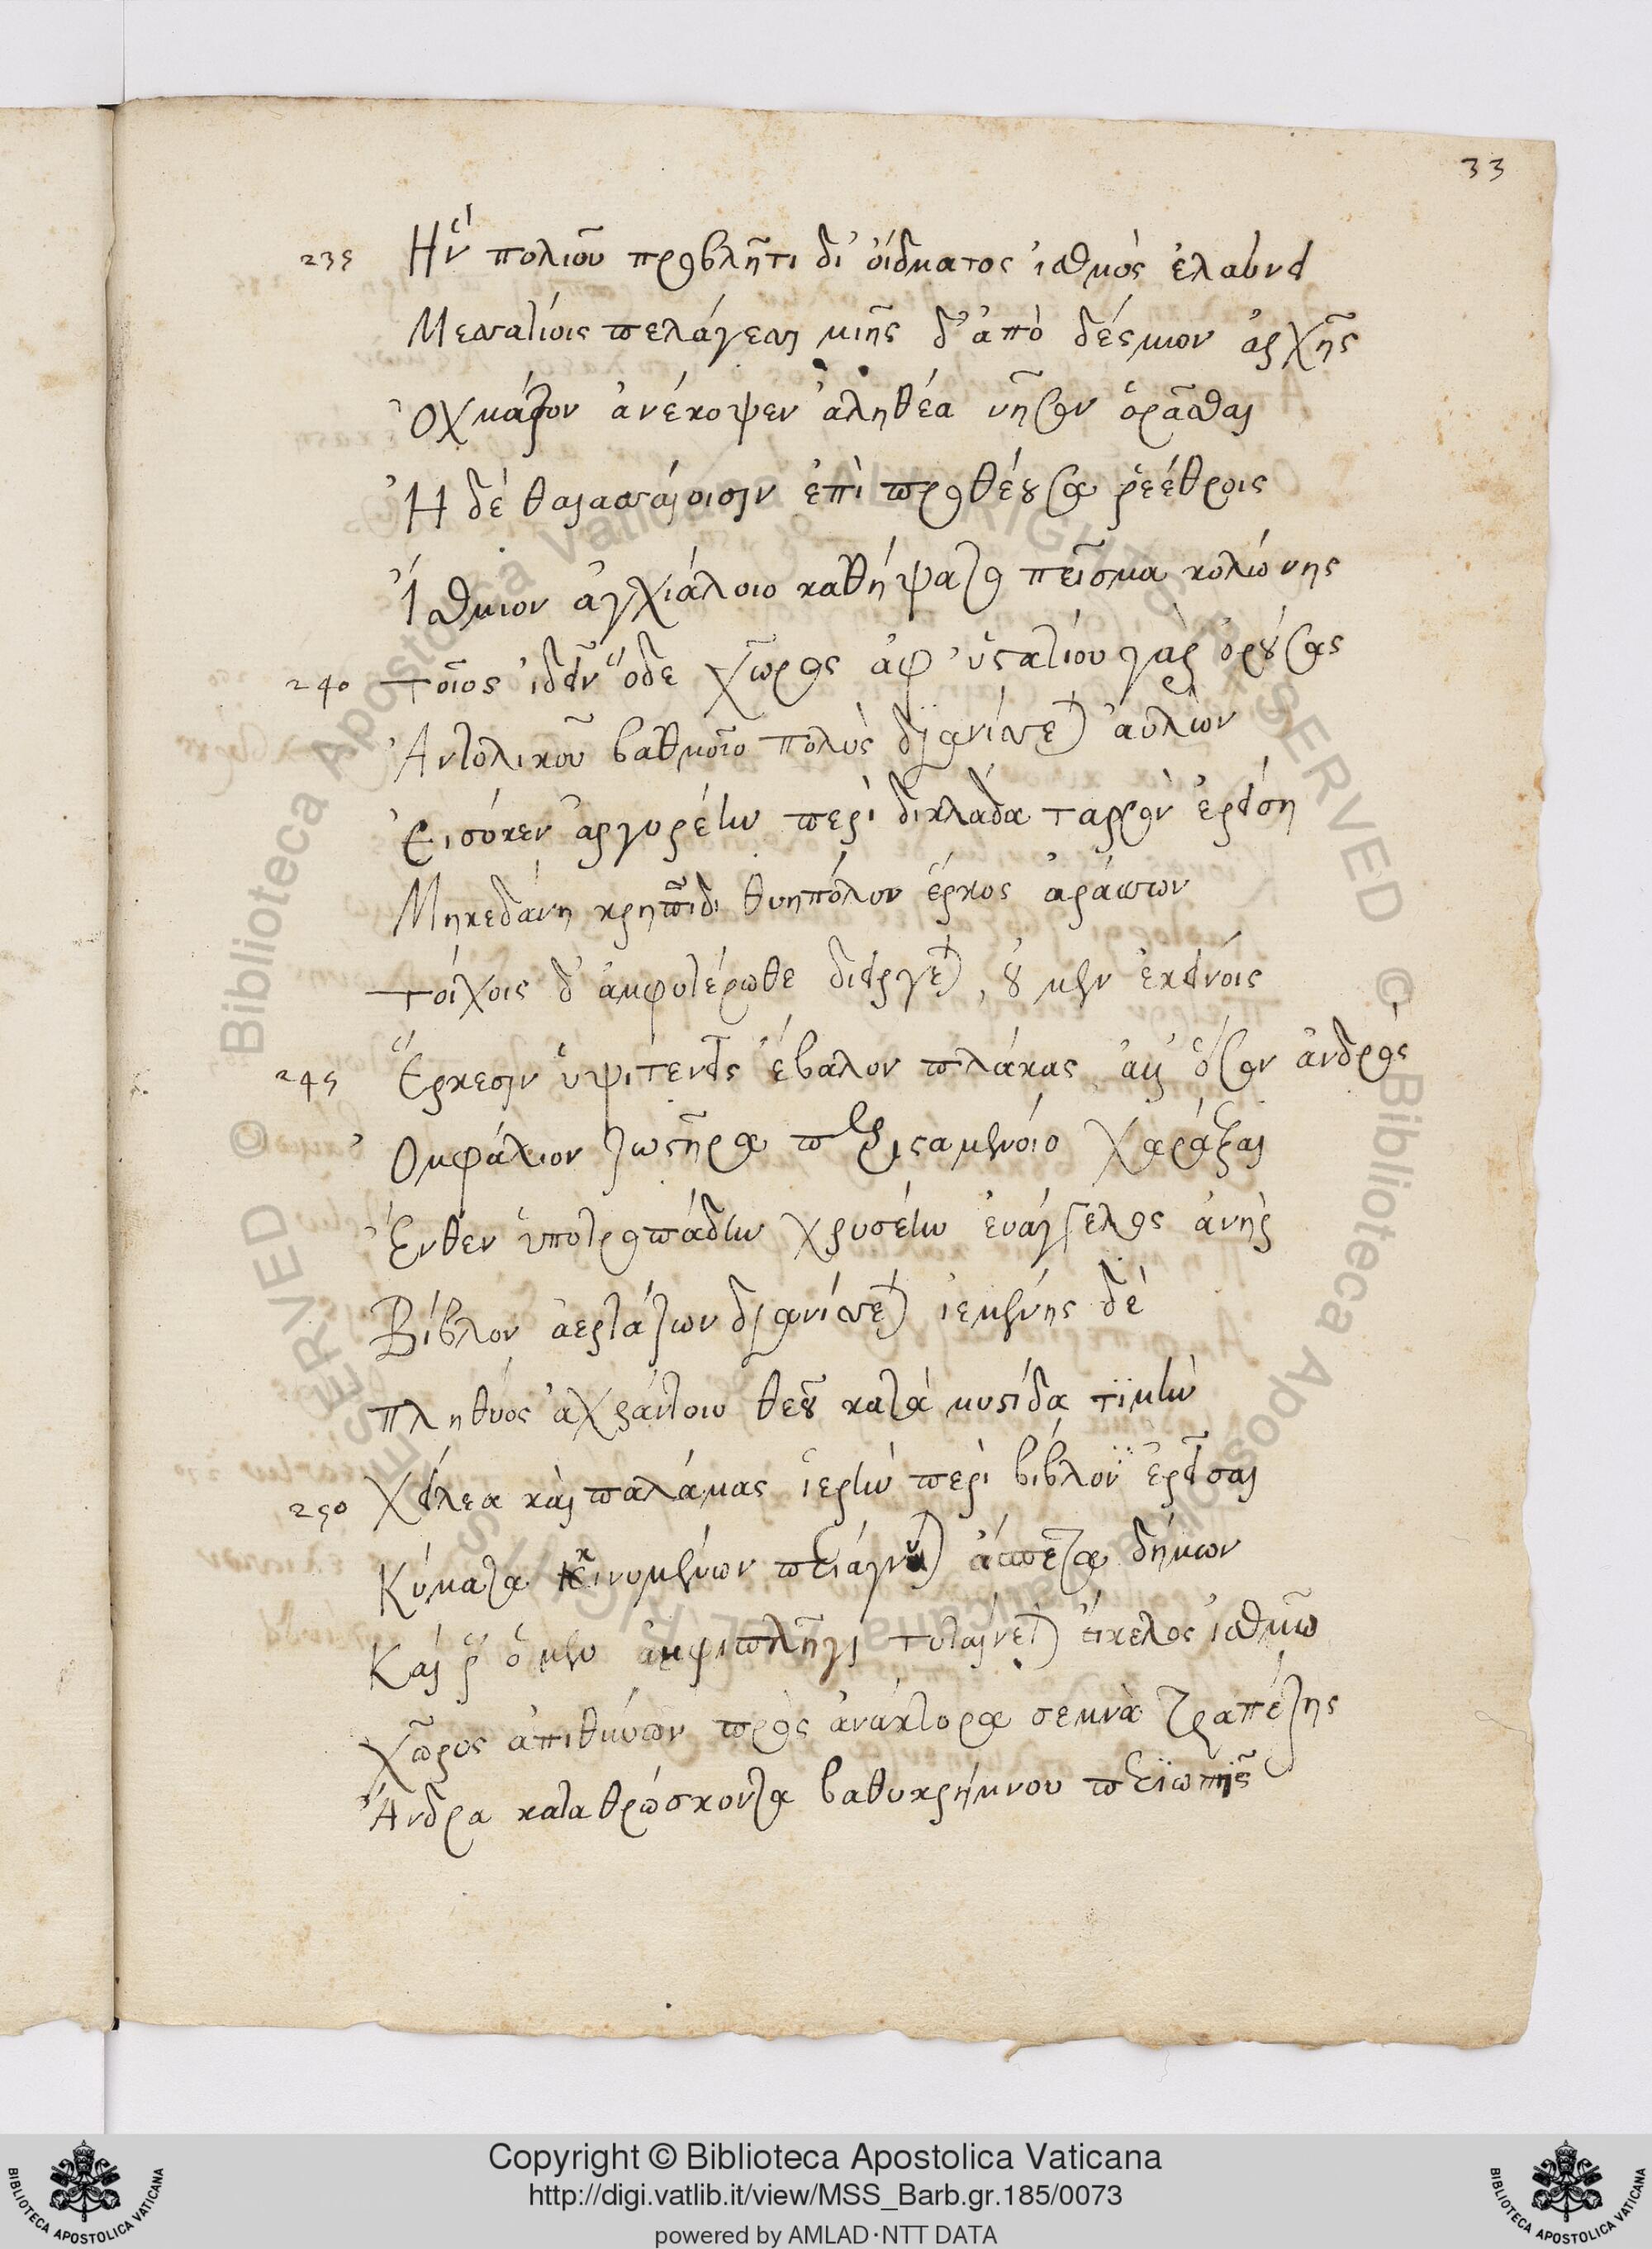 33
235 Ἣν πολιοῦ προβλῆτι δι' οἴδματος ἰσθμὸς ἐλαύνει
Μεσσατίοις πελάγεσσι μιῆς δ' ἀπὸ δέσμιον ἀρχῆς
Ὀχμάζον ἀνέκοψεν ἀληθέα νῆσον ὁρᾶσθαι
Ἡ δὲ θαλασσαίοισιν ἐπὶ προθέουσα ῥεέθροις
Ἴσθμιον ἀγχιάλοιο καθήψατο πεῖσμα κολώνης
240 τοῖος ἰδεῖν ὅδε χῶρος ἀφ' ὑστατίου γὰρ ὀρούσας
Ἀντολικοῦ βαθμοῖο πολὺς διανίσσεται αὐλὼν
Εἰσόκεν ἀργυρέην περὶ δικλάδα ταρσὸν ἐρείσῃ
Μηκεδάνῃ κρηπῖδι θυηπόλον ἕρκος ἀράσσων
τοίχοις δ' ἀμφοτέρωθε διείργεται, οὐ μὲν ἐκείνοις
245 Ἕρκεσιν ὑψιτενεῖς ἔβαλον πλάκας ἀλλ' ὅσον ἀνδρὸς
Ὀμφάλιον ζωστῆρα παρισταμένοιο χαράξαι
Ἔνθεν ὑποτροπάδην χρυσέην εὐάγγελος ἀνὴρ
Βίβλον ἀερτάζων διανίσσεται ἱεμένης δὲ
πληθύος ἀχράντοιο θεοῦ κατὰ μυστίδα τιμὴν
250 Χείλεα καὶ παλάμας ἱερὴν περὶ βίβλον ἐρεῖσαι
Κύματα κινυμένων περιάγνυται ἄσπετα δήμων
Καί ῥ' ὁ μὲν ἀμφιπλῆγι τιταίνεται εἴκελος ἰσθμῷ
Χῶρος ἀπιθύνων πρὸς ἀνάκτορα σεμνὰ τραπέζης
Ἄνδρα καταθρώσκοντα βαθυκρήμνου περιωπῆς
Copyright © Biblioteca Apostolica Vaticana
http://digi.vatlib.it/view/MSS_Barb.gr.185/0073
powered by AMLAD·NTT DATA
BIBLIOTECA APOSTOLICA VATICANA
BIBLIOTECA APOSTOLICA VATICANA